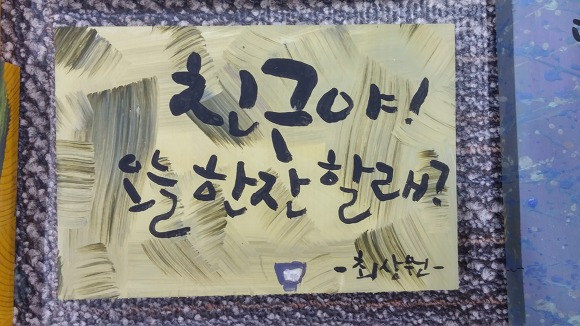 친구야!
오늘 한잔 할래?
-최상원-